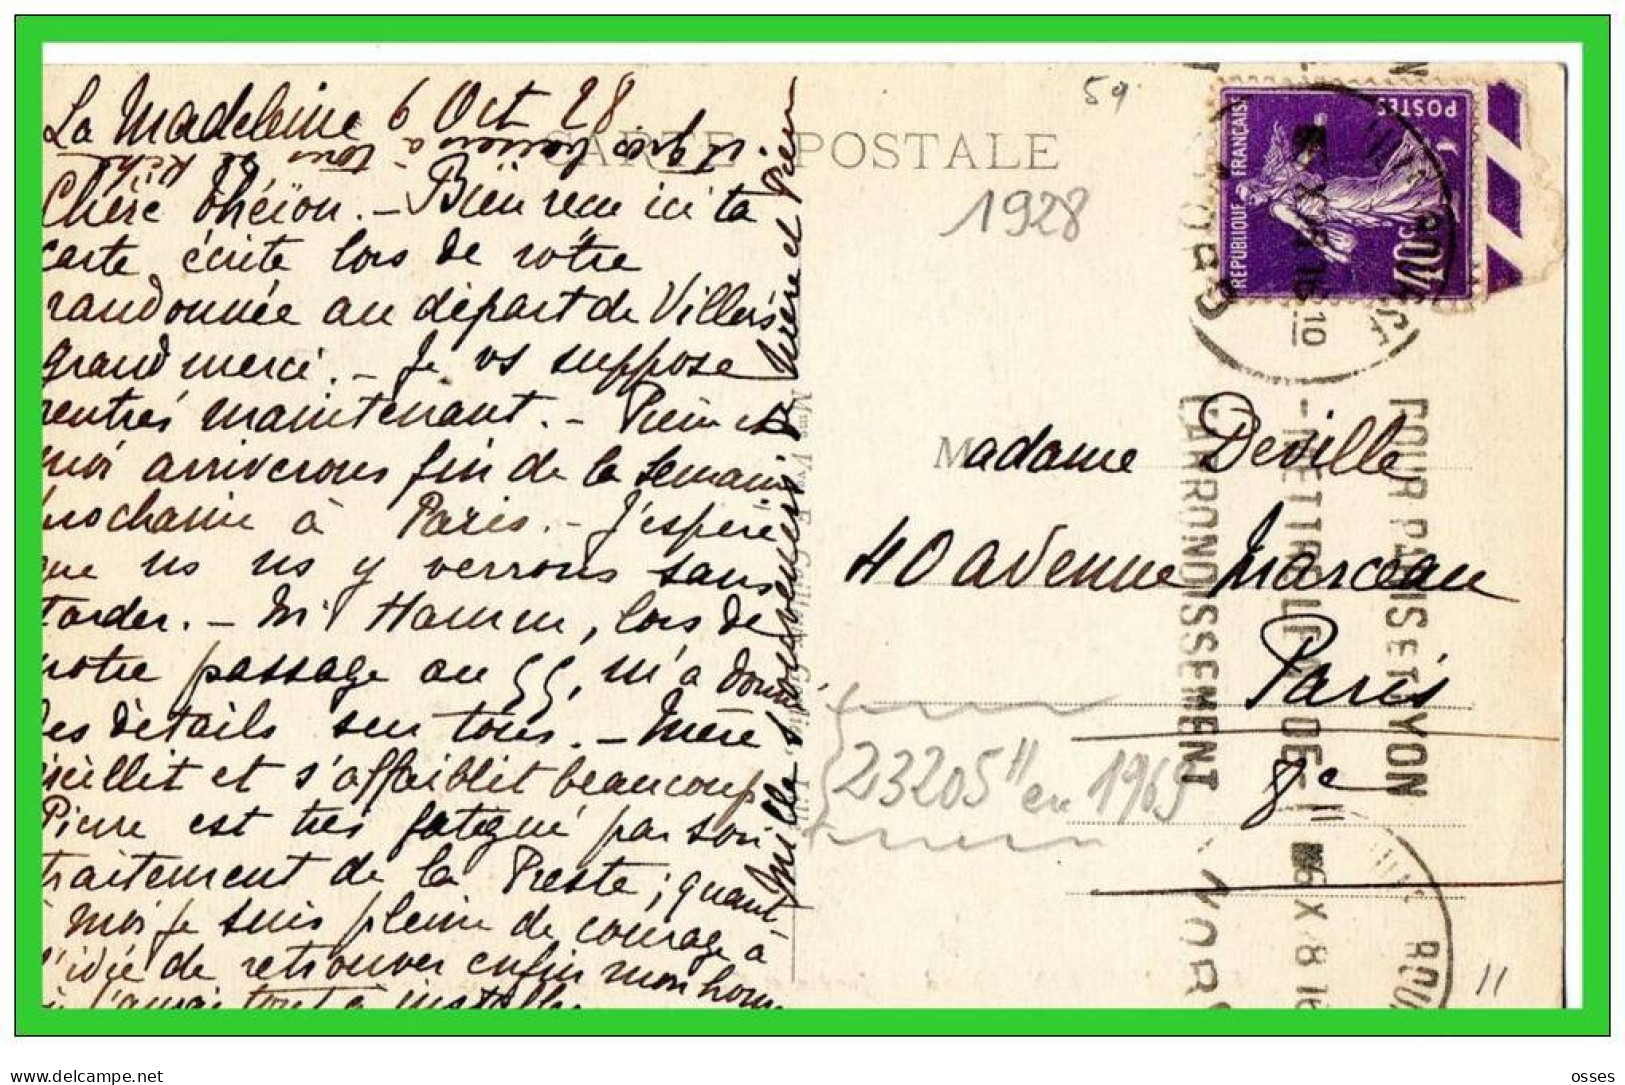 La Madeleine 6 Oct 28
Chère
Bien reçu ici ta
carte écrite lors de votre
randonnée au départ de Villers
grand merci. - Je vs suppose
rentrés maintenant. -
moi arriverons fin de la semaine
prochaine à Paris. - J'espère
que ns ns y verrons sans
tarder. - Mr Hamm, lors de
notre passage au 55, m'a donné
des détails sur tous. - Mère
vieillit et s'affaiblit beaucoup
Pierre est très fatigué par son
traitement de la Preste; quant
à moi je suis pleine de courage à
l'idée de retrouver enfin mon home
Mille souvenirs de mère et
CARTE POSTALE
59
1928
Madame Deville
40 avenue Marceau
Paris
8e
23205" en 1969
11
RÉPUBLIQUE FRANÇAISE
POSTES
POUR PARIS ET LYON
- METTRE LE No DE -
L'ARRONDISSEMENT
osses